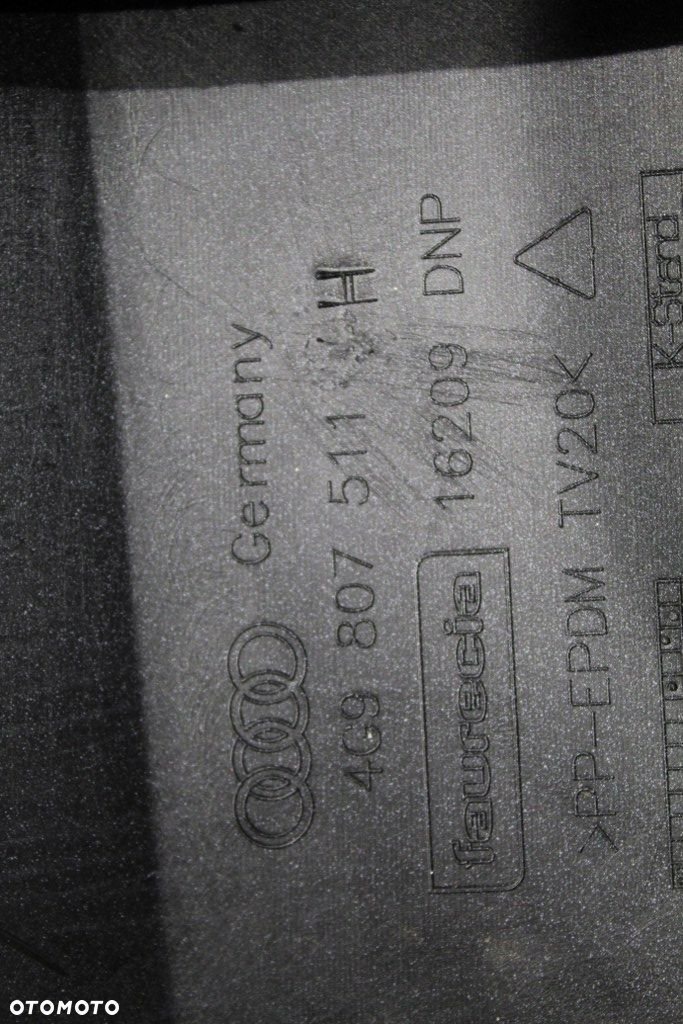 Germany
4G9 807 511 H
faurecia 16209 DNP
>PP-EPDM TV20<
K-Stand
OTOMOTO